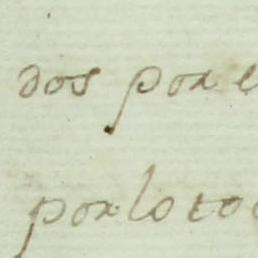 dos por e
por lo to